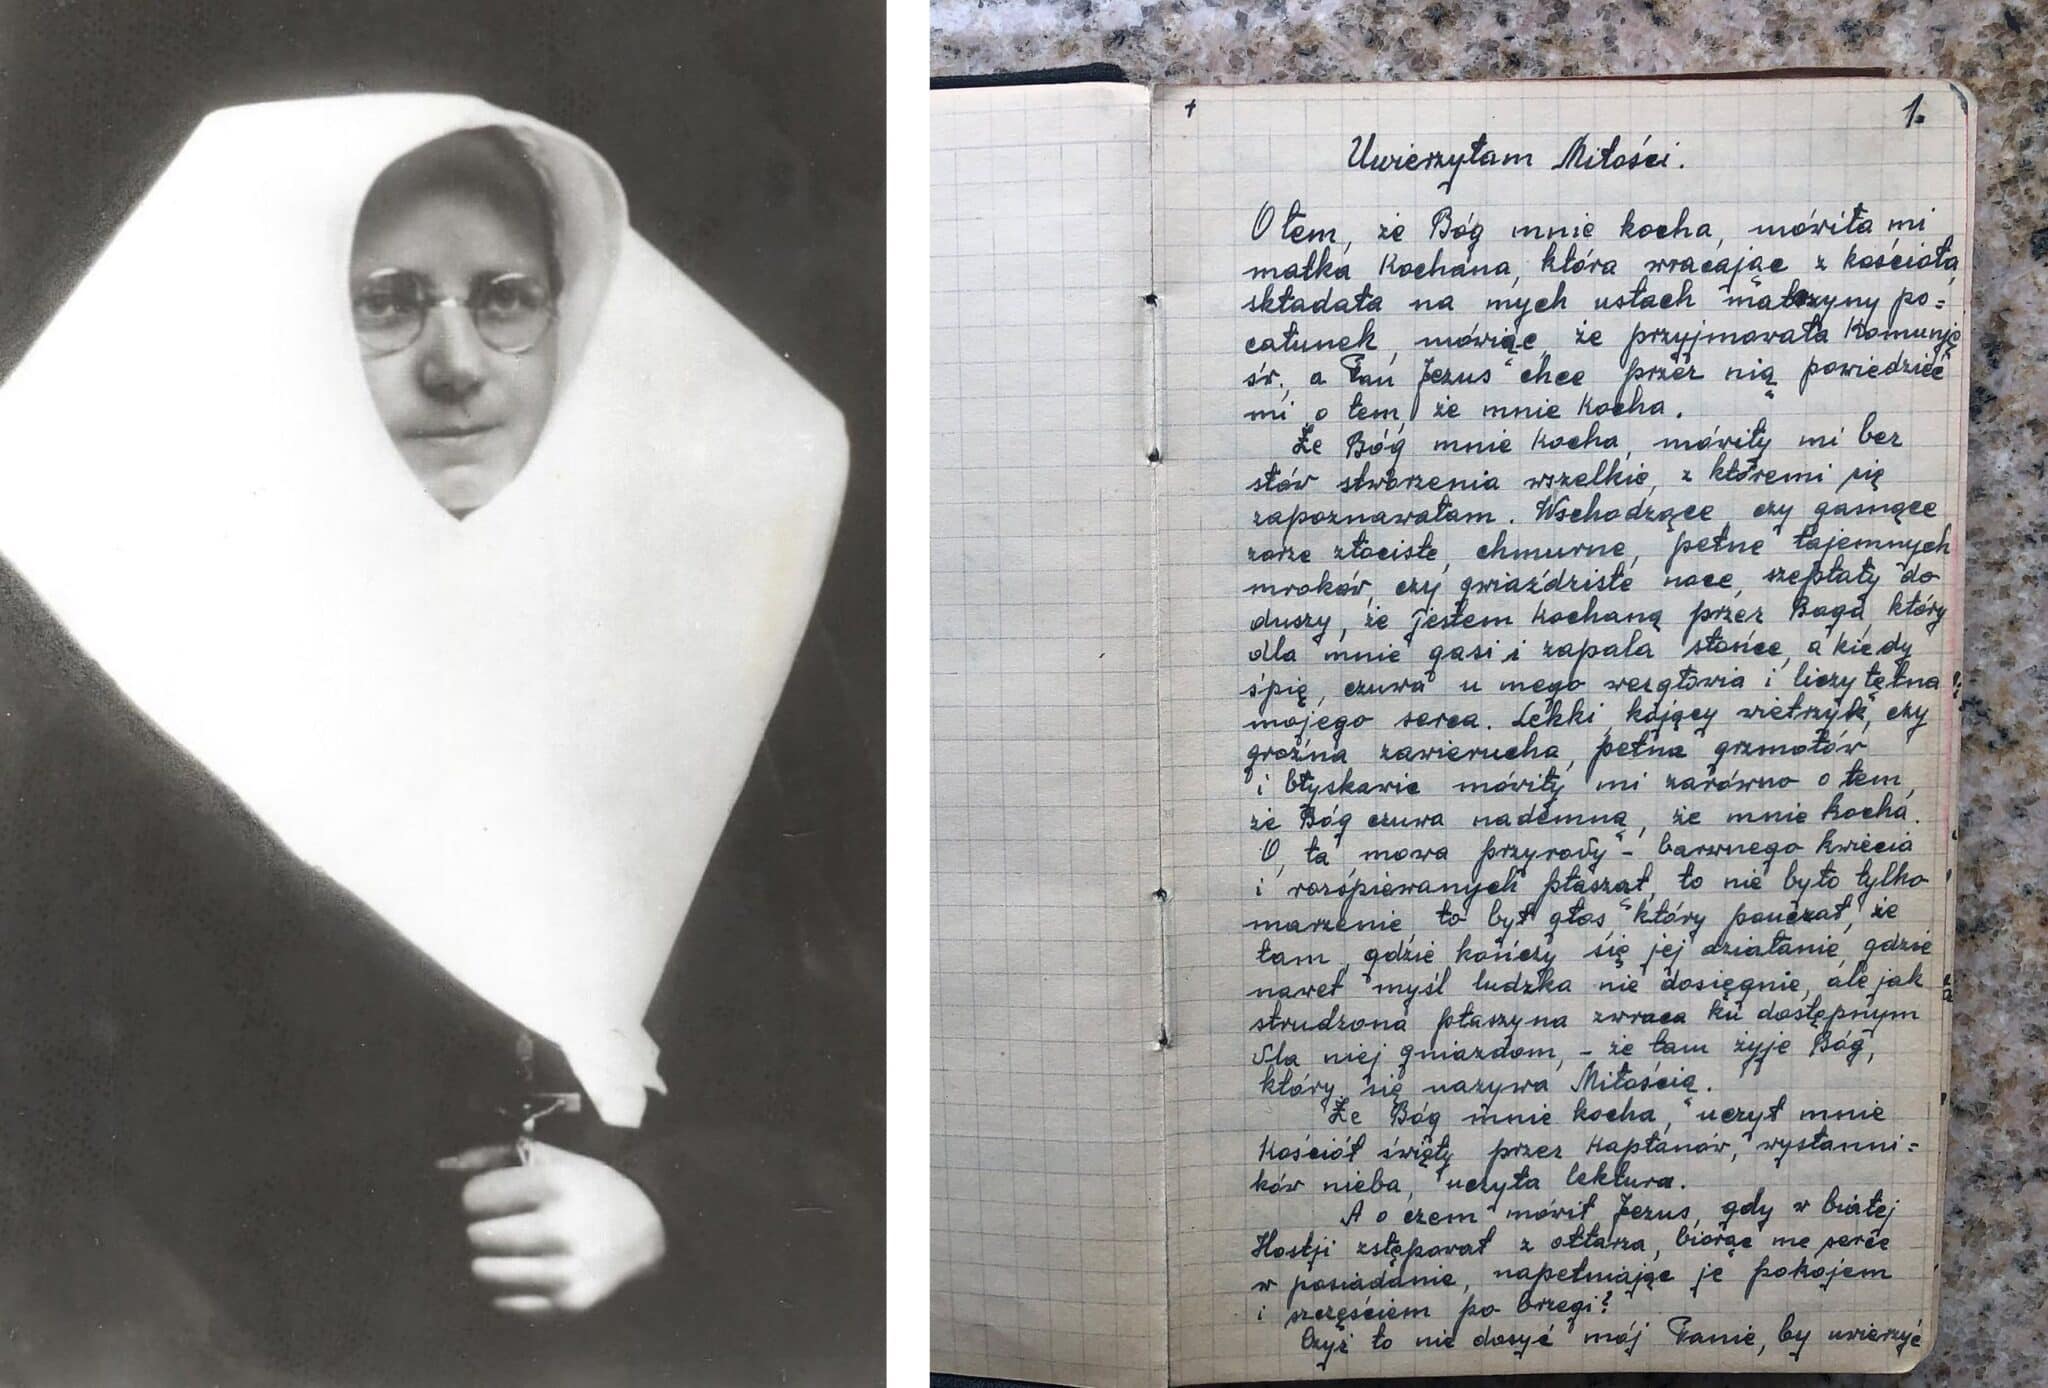 + 1.
Uwierzyłam Miłości.
O tem, że Bóg mnie kocha, mówiła mi
matka kochana, która wracając z kościoła
składała na mych ustach matczyny po=
całunek, mówiąc, że przyjmowała Komunję
św., a Pan Jezus chce przez nią powiedzieć
mi o tem, że mnie kocha.
Że Bóg mnie kocha, mówiły mi bez
słów stworzenia wszelkie, z któremi się
zapoznawałam. Wschodzące czy gasnące
zorze złociste, chmurne, pełne tajemnych
mroków, czy gwiaździste noce, szeptały do
duszy, że jestem kochaną przez Boga, który
dla mnie gasi i zapala słońce, a kiedy
śpię, czuwa u mego wezgłowia i liczy tętna
mojego serca. Lekki kojący wietrzyk, czy
groźna zawierucha, pełna grzmotów
i błyskawic mówiły mi zarówno o tem,
że Bóg czuwa nademną, że mnie kocha.
O, ta mowa przyrody – barwnego kwiecia
i rozśpiewanych ptasząt, to nie było tylko
marzenie, to był głos który pouczał, że
tam, gdzie kończy się jej działanie, gdzie
nawet myśl ludzka nie dosięgnie, ale jak
strudzona ptaszyna zwraca ku dostępnym
dla niej gniazdom, – że tam żyje Bóg,
który się nazywa Miłością.
Że Bóg mnie kocha, uczył mnie
Kościół święty przez kapłanów, wysłanni=
ków nieba, uczyła lektura.
A o czem mówił Jezus, gdy w białej
Hostji zstępował z ołtarza, biorąc me serce
w posiadanie, napełniając je pokojem
i szczęściem po brzegi?
Czyż to nie dosyć mój Panie, by uwierzyć